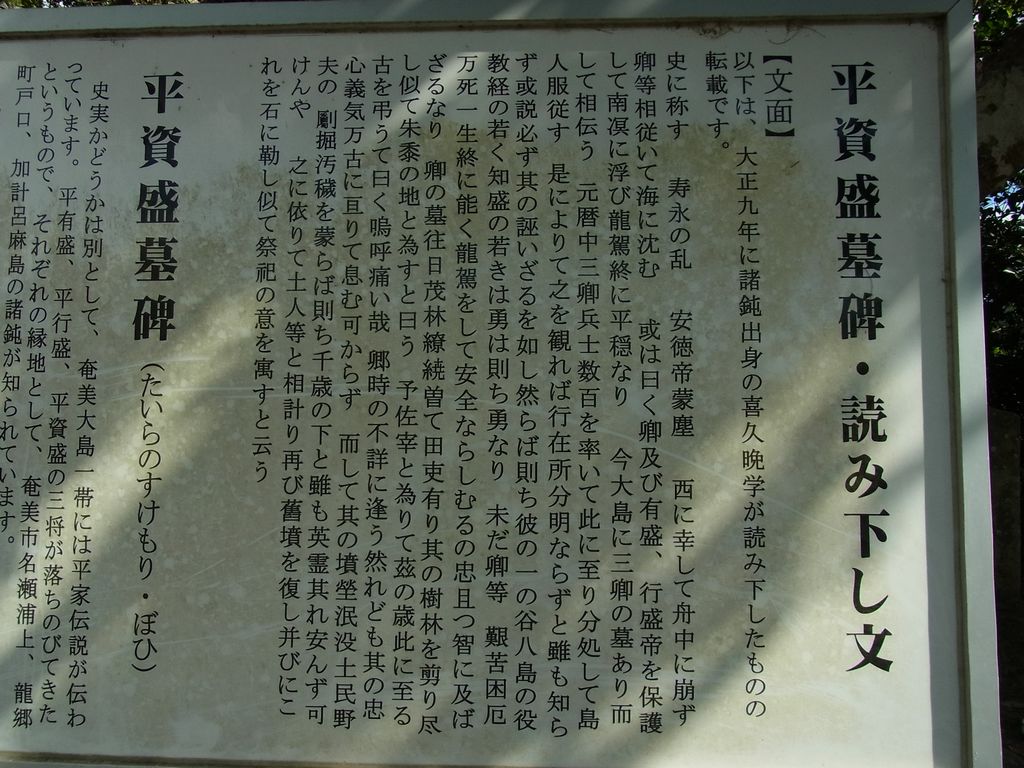 平資盛墓碑・読み下し文
【文面】
以下は、大正九年に諸鈍出身の喜久晩学が読み下したものの
転載です。
史に称す 寿永の乱 安徳帝蒙塵 西に幸して舟中に崩ず
卿等相従いて海に沈む 或は曰く卿及び有盛、行盛帝を保護
して南溟に浮び龍駕終に平穏なり 今大島に三卿の墓あり而
して相伝う 元暦中三卿兵士数百を率いて此に至り分処して島
人服従す 是によりて之を観れば行在所分明ならずと雖も知ら
ず或説必ず其の誣いざるを如し然らば則ち彼の一の谷八島の役
教経の若く知盛の若きは勇は則ち勇なり 未だ卿等 艱苦困厄
万死一生終に能く龍駕をして安全ならしむるの忠且つ智に及ば
ざるなり 卿の墓往日茂林繚繞曽て田吏有り其の樹林を剪り尽
し似て朱黍の地と為すと曰う 予佐幸と為りて茲の歳此に至る
古を弔うて曰く嗚呼痛い哉 卿時の不詳に逢う然れども其の忠
心義気万古に亘りて息む可からず 而して其の墳塋泯没土民野
夫の 剷掘汚穢を蒙らば則ち千歳の下と雖も英霊其れ安んず可
けんや 之に依りて土人等と相計り再び舊墳を復し并びにこ
れを石に勒し似て祭祀の意を寓すと云う
平資盛墓碑(たいらのすけもり・ぼひ)
史実かどうかは別として、奄美大島一帯には平家伝説が伝わ
っています。平有盛、平行盛、平資盛の三将が落ちのびてきた
というもので、それぞれの縁地として、奄美市名瀬浦上、龍郷
町戸口、加計呂麻島の諸鈍が知られています。